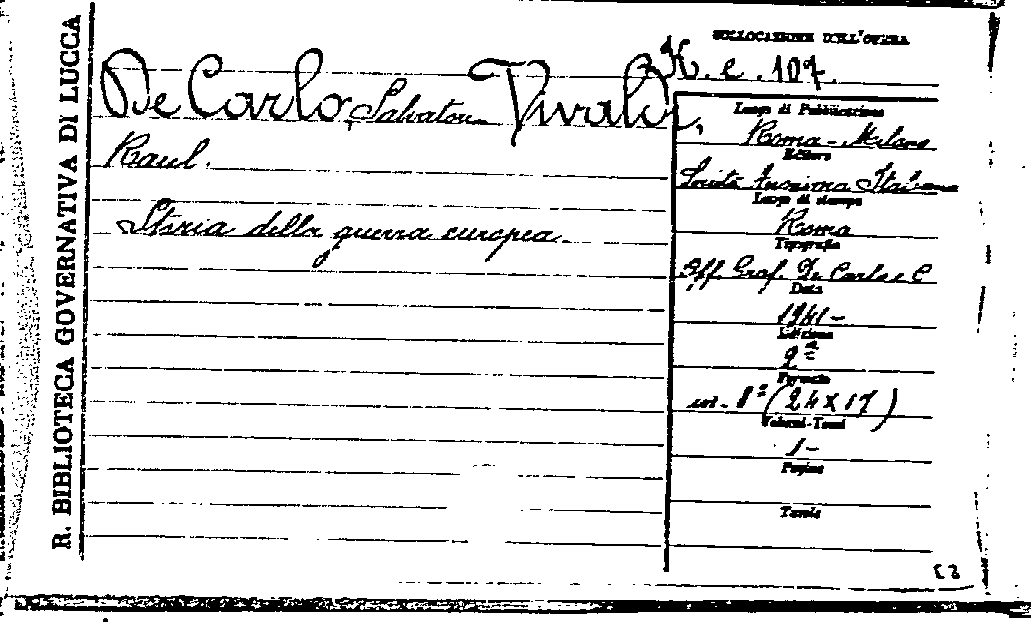 R. BIBLIOTECA GOVERNATIVA DI LUCCA
COLLOCAZIONE DELL'OPERA
K. e. 107.
De Carlo, Salvatore Vivaldi,
Raul.
Storia della guerra europea.
Luogo di Pubblicazione
Roma - Milano
Editore
Società Anonima Italiana
Luogo di stampa
Roma
Tipografia
Off. Graf. De Carlo e C
Data
1941 -
Edizione
2ª
Formato
in- 8° (24 x 17)
Volumi-Tomi
1 -
Pagine
Tavole